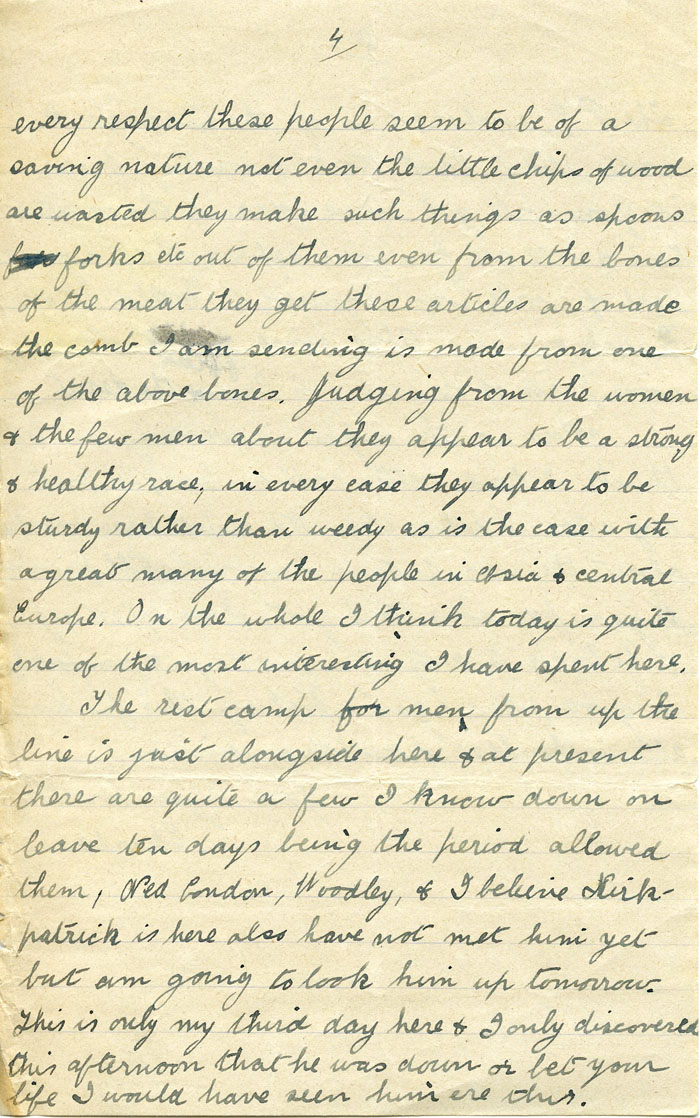 4
every respect these people seem to be of a
saving nature not even the little chips of wood
are wasted they make such things as spoons
forks etc out of them even from the bones
of the meat they get these articles are made
the comb I am sending is made from one
of the above bones. Judging from the women
& the few men about they appear to be a strong
& healthy race, in every case they appear to be
sturdy rather than weedy as is the case with
a great many of the people in Asia & central
Europe. On the whole I think today is quite
one of the most interesting I have spent here.
The rest camp for men from up the
line is just alongside here & at present
there are quite a few I know down on
leave ten days being the period allowed
them, Ned Condon, Woodley, & I believe Kirk-
patrick is here also have not met him yet
but am going to look him up tomorrow.
This is only my third day here & I only discovered
this afternoon that he was down or bet your
life I would have seen him ere this.